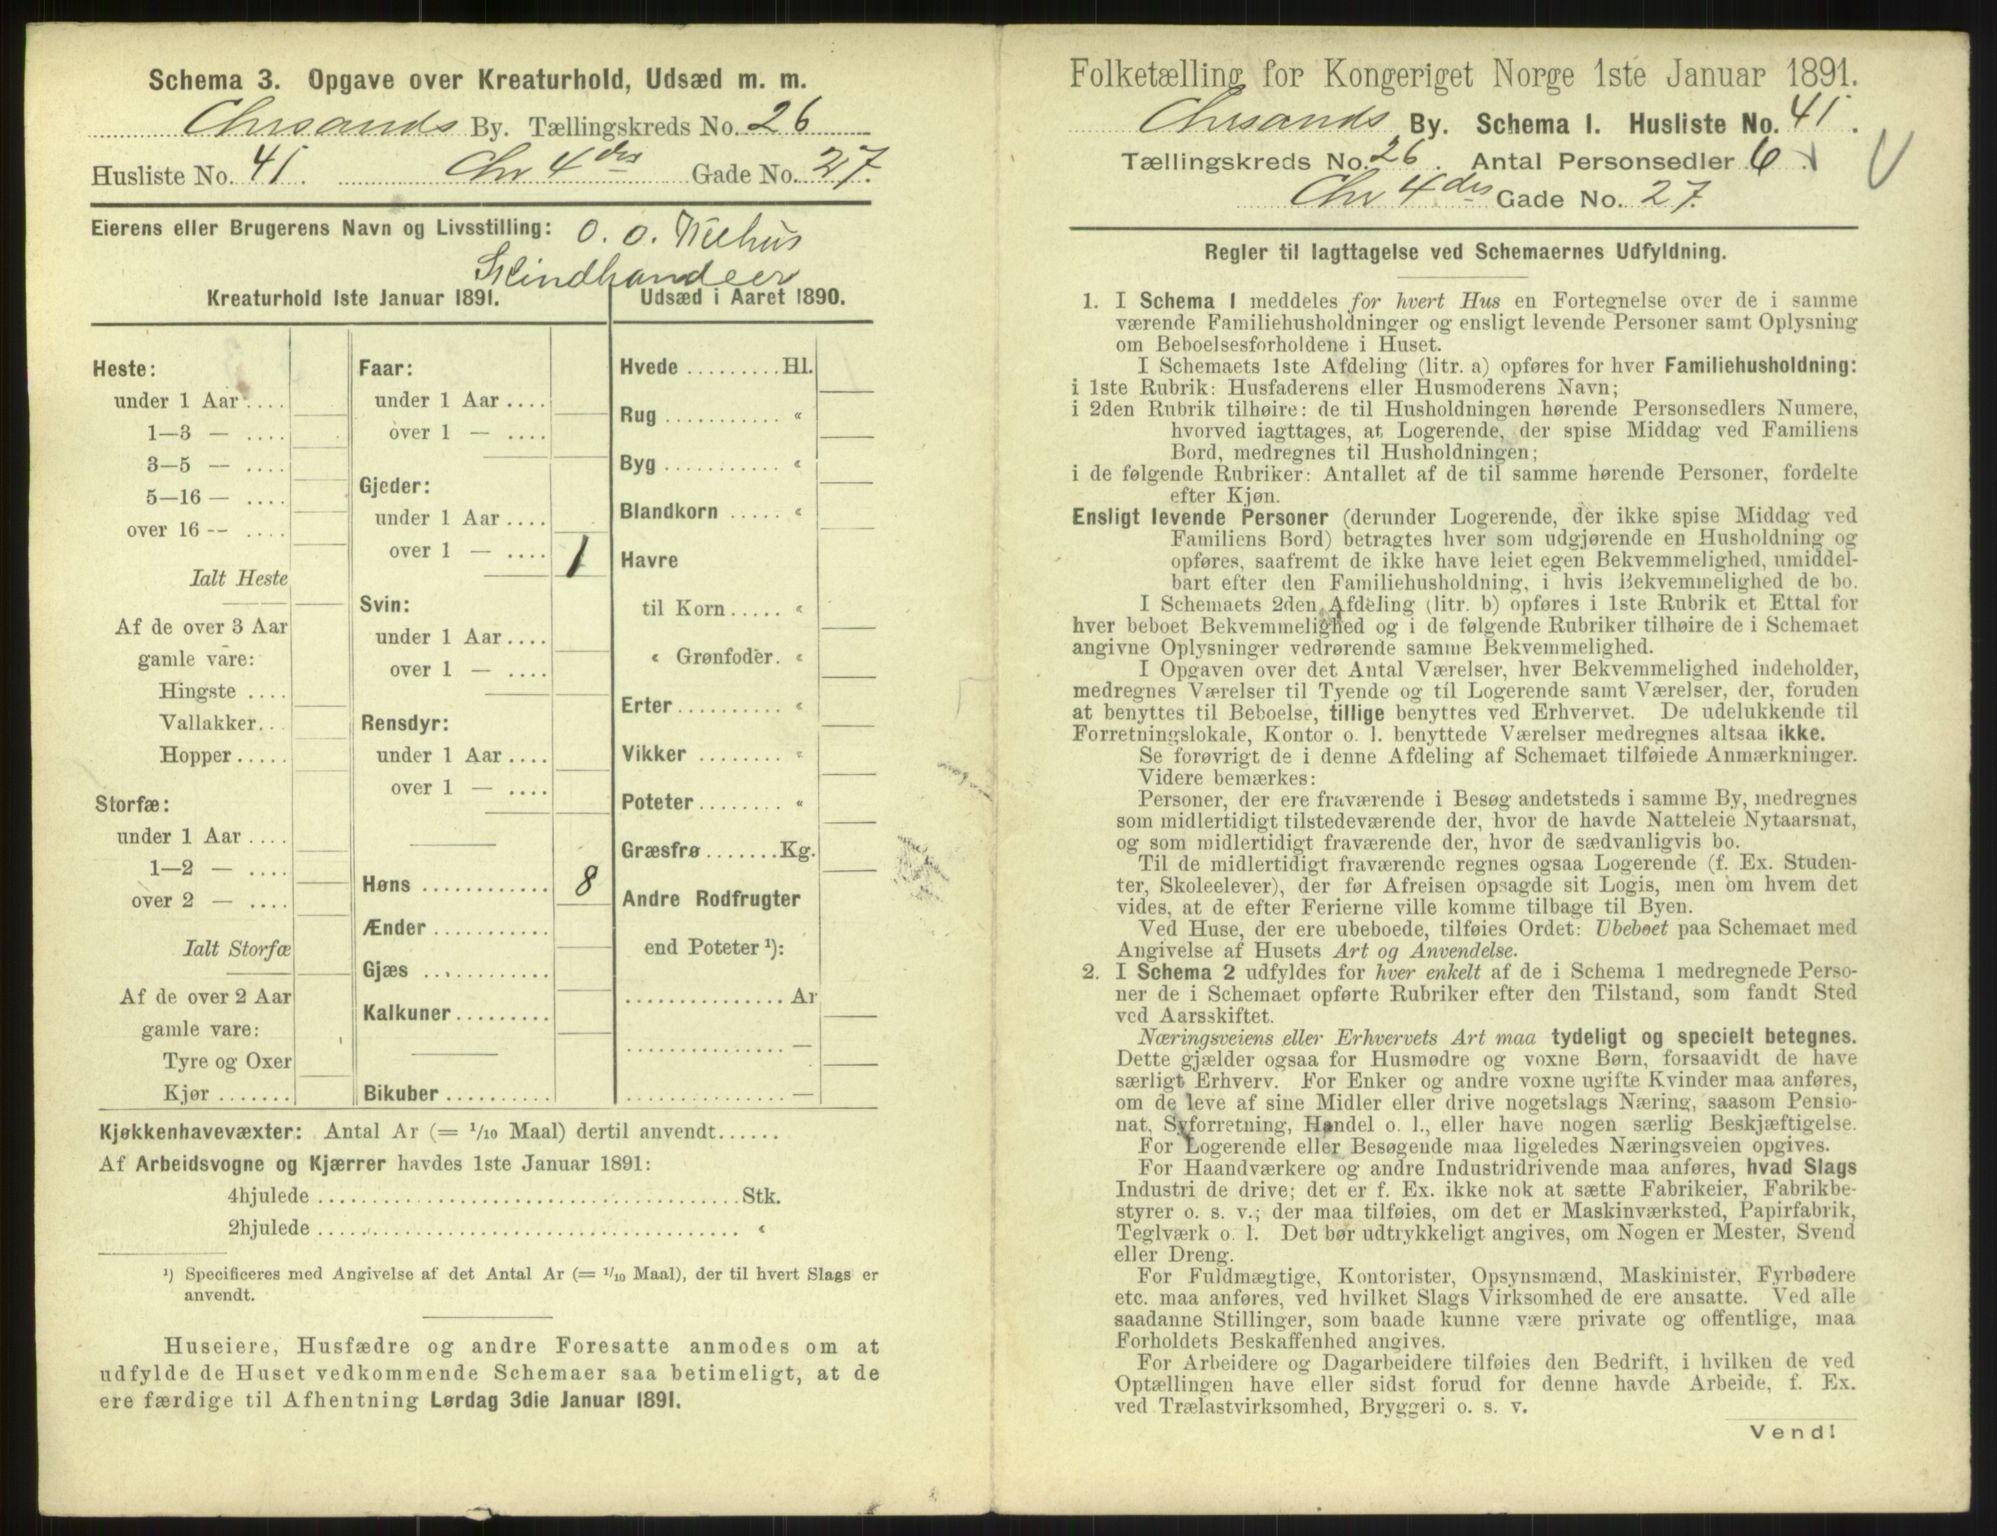 Schema 3. Opgave over Kreaturhold, Udsæd m. m.
Chrsands By. Tællingskreds No. 26
Husliste No. 41. Chr 4des Gade No. 27.
Eierens eller Brugerens Navn og Livsstilling: O. O.
Skindhandler
Kreaturhold 1ste Januar 1891.
Heste:
under 1 Aar ....
1—3 — ....
3—5 — ....
5—16 — ....
over 16 -- ....
Ialt Heste
Af de over 3 Aar
gamle vare:
Hingste ....
Vallakker...
Hopper.....
Storfæ:
under 1 Aar ....
1—2 — ....
over 2 — ....
Ialt Storfæ
Af de over 2 Aar
gamle vare:
Tyre og Oxer
Kjør .......
Faar:
under 1 Aar ....
over 1 — ....
Gjeder:
under 1 Aar ....
over 1 — .... 1
Svin:
under 1 Aar....
over 1 — ....
Rensdyr:
under 1 Aar ....
over 1 — ....
Høns ............ 8
Ænder ...........
Gjæs ............
Kalkuner.........
Bikuber ..........
Udsæd i Aaret 1890.
Hvede .........Hl.
Rug ........... «
Byg ........... «
Blandkorn ..... «
Havre
til Korn..... «
« Grønfoder. «
Erter.......... «
Vikker ........ «
Poteter........ «
Græsfrø.......Kg.
Andre Rodfrugter
end Poteter ¹):
...............Ar
............... —
...............—
Kjøkkenhavevæxter: Antal Ar (= 1/10 Maal) dertil anvendt......
Af Arbeidsvogne og Kjærrer havdes 1ste Januar 1891:
4hjulede .......................................Stk.
2hjulede ....................................... «
¹) Specificeres med Angivelse af det Antal Ar (= 1/10 Maal), der til hvert Slags er
anvendt.
Huseiere, Husfædre og andre Foresatte anmodes om at
udfylde de Huset vedkommende Schemaer saa betimeligt, at de
ere færdige til Afhentning Lørdag 3die Januar 1891.
Folketælling for Kongeriget Norge 1ste Januar 1891.
Chrsands By. Schema 1. Husliste No. 41.
Tællingskreds No. 26. Antal Personsedler 6.
Chr 4des Gade No. 27.
Regler til Iagttagelse ved Schemaernes Udfyldning.
1. I Schema 1 meddeles for hvert Hus en Fortegnelse over de i samme
værende Familiehusholdninger og ensligt levende Personer samt Oplysning
om Beboelsesforholdene i Huset.
I Schemaets 1ste Afdeling (litr. a) opføres for hver Familiehusholdning:
i 1ste Rubrik: Husfaderens eller Husmoderens Navn;
i 2den Rubrik tilhøire: de til Husholdningen hørende Personsedlers Numere,
hvorved iagttages, at Logerende, der spise Middag ved Familiens
Bord, medregnes til Husholdningen;
i de følgende Rubriker: Antallet af de til samme hørende Personer, fordelte
efter Kjøn.
Ensligt levende Personer (derunder Logerende, der ikke spise Middag ved
Familiens Bord) betragtes hver som udgjørende en Husholdning og
opføres, saafremt de ikke have leiet egen Bekvemmelighed, umiddel-
bart efter den Familiehusholdning, i hvis Bekvemmelighed de bo.
I Schemaets 2den Afdeling (litr. b) opføres i 1ste Rubrik et Ettal for
hver beboet Bekvemmelighed og i de følgende Rubriker tilhøire de i Schemaet
angivne Oplysninger vedrørende samme Bekvemmelighed.
I Opgaven over det Antal Værelser, hver Bekvemmelighed indeholder,
medregnes Værelser til Tyende og til Logerende samt Værelser, der, foruden
at benyttes til Beboelse, tillige benyttes ved Erhvervet. De udelukkende til
Forretningslokale, Kontor o. l. benyttede Værelser medregnes altsaa ikke.
Se forøvrigt de i denne Afdeling af Schemaet tilføiede Anmærkninger.
Videre bemærkes:
Personer, der ere fraværende i Besøg andetsteds i samme By, medregnes
som midlertidigt tilstedeværende der, hvor de havde Natteleie Nytaarsnat,
og som midlertidigt fraværende der, hvor de sædvanligvis bo.
Til de midlertidigt fraværende regnes ogsaa Logerende (f. Ex. Studen-
ter, Skoleelever), der før Afreisen opsagde sit Logis, men om hvem det
vides, at de efter Ferierne ville komme tilbage til Byen.
Ved Huse, der ere ubeboede, tilføies Ordet: Ubeboet paa Schemaet med
Angivelse af Husets Art og Anvendelse.
2. I Schema 2 udfyldes for hver enkelt af de i Schema 1 medregnede Perso-
ner de i Schemaet opførte Rubriker efter den Tilstand, som fandt Sted
ved Aarsskiftet.
Næringsveiens eller Erhvervets Art maa tydeligt og specielt betegnes.
Dette gjælder ogsaa for Husmødre og voxne Børn, forsaavidt de have
særligt Erhverv. For Enker og andre voxne ugifte Kvinder maa anføres,
om de leve af sine Midler eller drive nogetslags Næring, saasom Pensio-
nat, Syforretning, Handel o. l., eller have nogen særlig Beskjæftigelse.
For Logerende eller Besøgende maa ligeledes Næringsveien opgives.
For Haandværkere og andre Industridrivende maa anføres, hvad Slags
Industri de drive; det er f. Ex. ikke nok at sætte Fabrikeier, Fabrikbe-
styrer o. s. v.; der maa tilføies, om det er Maskinværksted, Papirfabrik,
Teglværk o. l. Det bør udtrykkeligt angives, om Nogen er Mester, Svend
eller Dreng.
For Fuldmægtige, Kontorister, Opsynsmænd, Maskinister, Fyrbødere
etc. maa anføres, ved hvilket Slags Virksomhed de ere ansatte. Ved alle
saadanne Stillinger, som baade kunne være private og offentlige, maa
Forholdets Beskaffenhed angives.
For Arbeidere og Dagarbeidere tilføies den Bedrift, i hvilken de ved
Optællingen have eller sidst forud for denne havde Arbeide, f. Ex.
ved Trælastvirksomhed, Bryggeri o. s. v.
Vend!